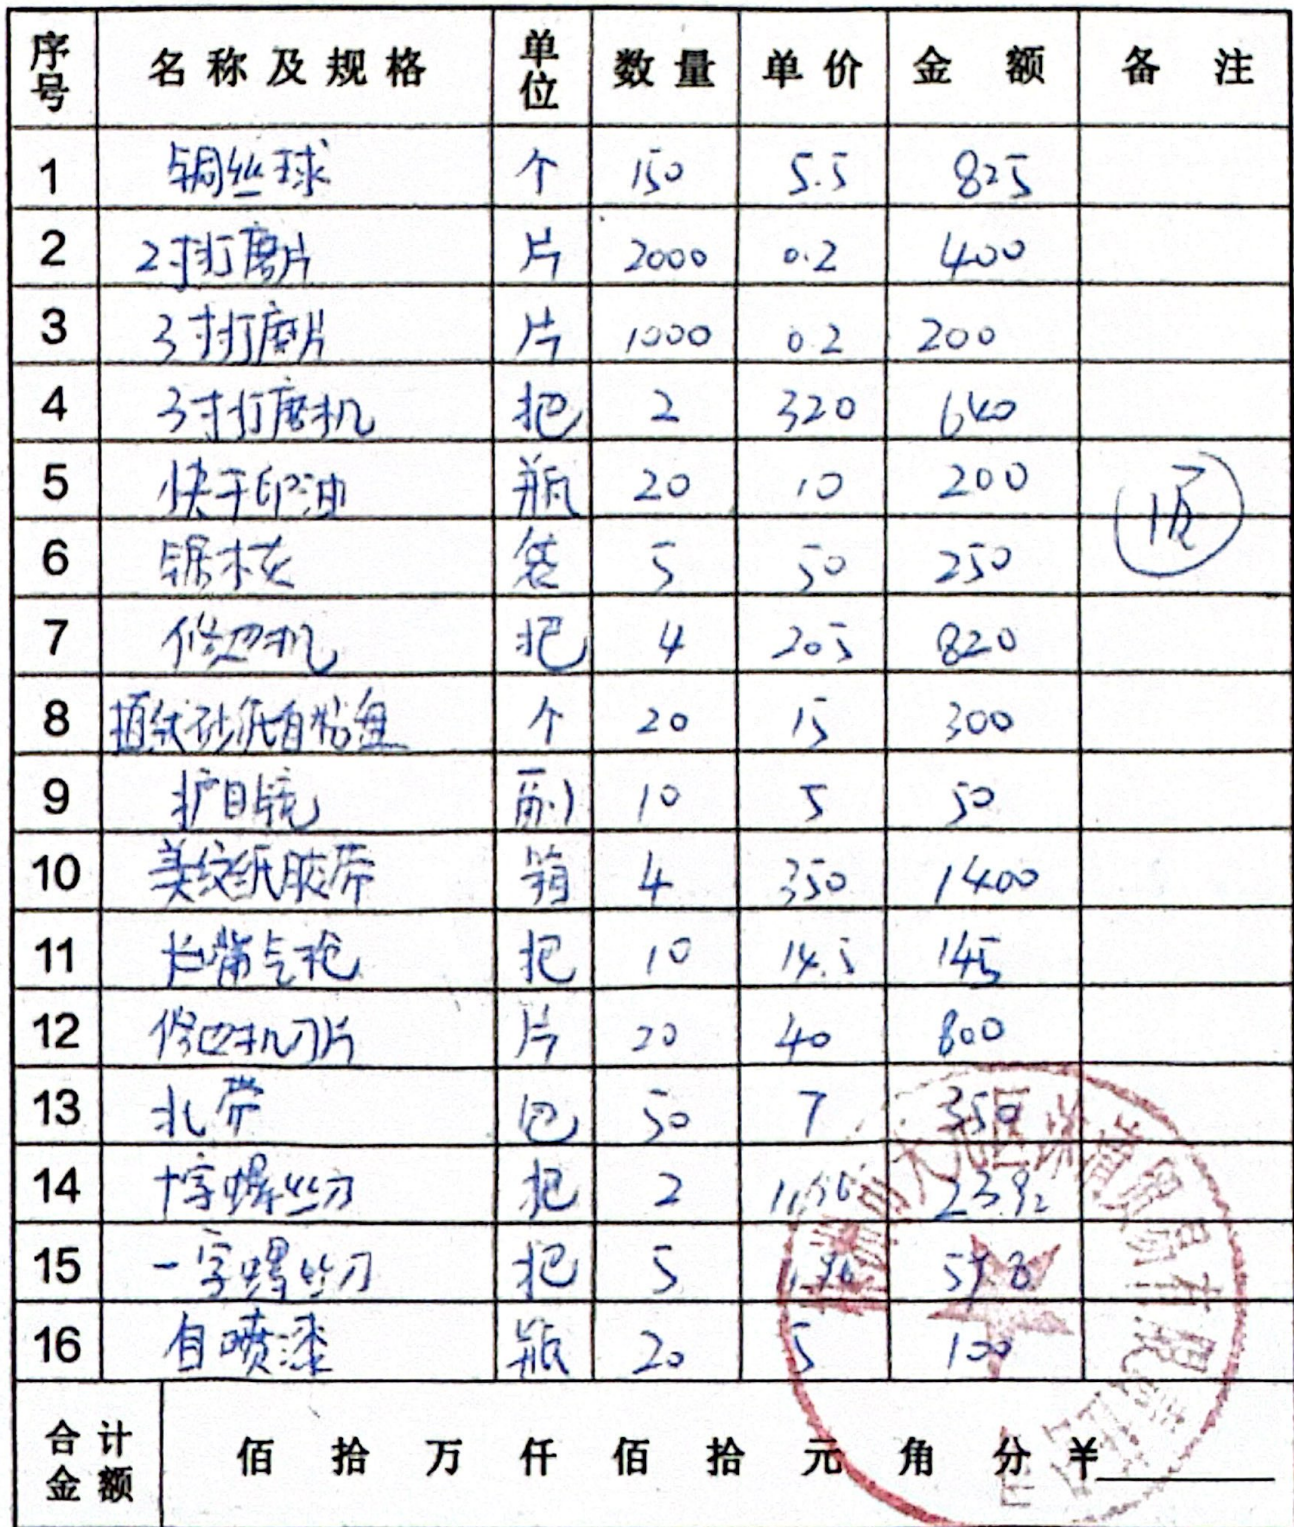 序号 名称及规格 单位 数量 单价 金额 备注
1 钢丝球 个 150 5.5 825
2 2寸打磨片 片 2000 0.2 400
3 3寸打磨片 片 1000 0.2 200
4 3寸打磨机 把 2 320 640
5 快干印油 瓶 20 10 200
6 锯木灰 袋 5 50 250
7 修边机 把 4 205 820
8 植绒砂纸自粘盘 个 20 15 300
9 护目镜 副 10 5 50
10 美纹纸胶带 箱 4 350 1400
11 长嘴气枪 把 10 14.5 145
12 修边机刀片 片 20 40 800
13 扎带 包 50 7 350
14 十字螺丝刀 把 2 11.96 23.92
15 一字螺丝刀 把 5 59.8
16 自喷漆 瓶 20 5 100
合计金额 佰 拾 万 仟 佰 拾 元 角 分 ¥
贸易有限责任公司